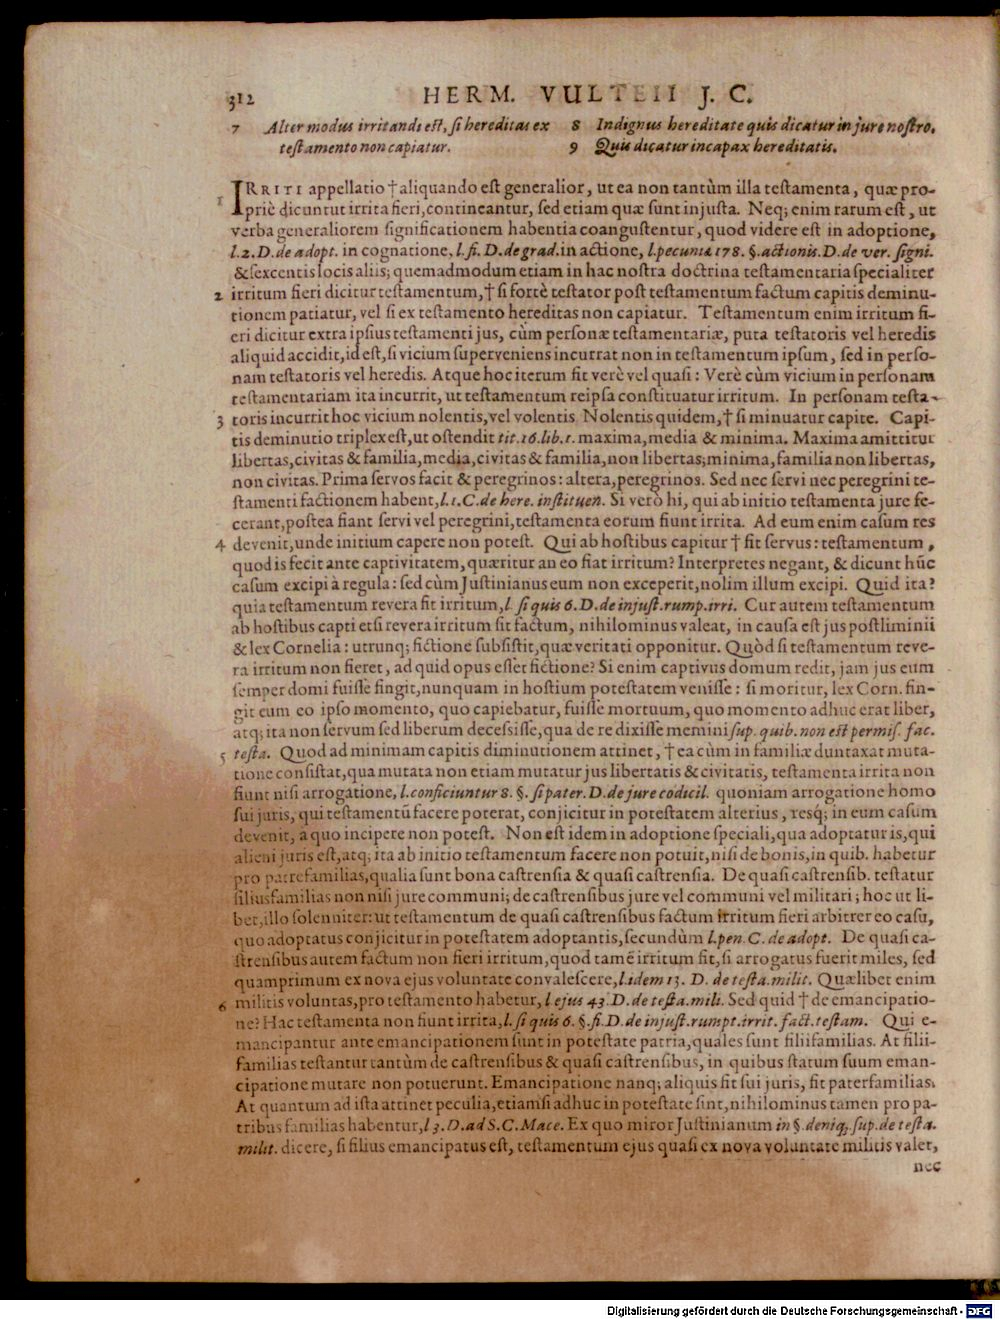 312 HERM. VULTEII J. C.
7 Alter modus irritandi est, si hereditas ex
testamento non capiatur.
8 Indignus hereditate quis dicatur in jure nostro.
9 Quis dicatur incapax hereditatis.
1 IRRITI appellatio † aliquando est generalior, ut ea non tantùm illa testamenta, quæ pro-
priè dicuntut irrita fieri, contineantur, sed etiam quæ sunt injusta. Neq; enim rarum est, ut
verba generaliorem significationem habentia coangustentur, quod videre est in adoptione,
l.2. D. de adopt. in cognatione, l. fi. D. de grad. in actione, l. pecuniæ 178. §. actionis. D. de ver. signi.
& sexcentis locis aliis; quemadmodum etiam in hac nostra doctrina testamentaria specialiter
2 irritum fieri dicitur testamentum, † si fortè testator post testamentum factum capitis deminu-
tionem patiatur, vel si ex testamento hereditas non capiatur. Testamentum enim irritum fi-
eri dicitur extra ipsius testamenti jus, cùm personæ testamentariæ, puta testatoris vel heredis
aliquid accidit, id est, si vicium superveniens incurrat non in testamentum ipsum, sed in perso-
nam testatoris vel heredis. Atque hoc iterum fit verè vel quasi: Verè cùm vicium in personam
testamentariam ita incurrit, ut testamentum reipsa constituatur irritum. In personam testa-
3 toris incurrit hoc vicium nolentis, vel volentis. Nolentis quidem, † si minuatur capite. Capi-
tis deminutio triplex est, ut ostendit tit. 16. lib. 1. maxima, media & minima. Maxima amittitur
libertas, civitas & familia, media, civitas & familia, non libertas; minima, familia non libertas,
non civitas. Prima servos facit & peregrinos: altera, peregrinos. Sed nec servi nec peregrini te-
stamenti factionem habent, l. 1. C. de here. instituen. Si verò hi, qui ab initio testamenta jure fe-
cerant, postea fiant servi vel peregrini, testamenta eorum fiunt irrita. Ad eum enim casum res
4 devenit, unde initium capere non potest. Qui ab hostibus capitur † fit servus: testamentum,
quod is fecit ante captivitatem, quæritur an eo fiat irritum? Interpretes negant, & dicunt hūc
casum excipi à regula: sed cùm Justinianus eum non exceperit, nolim illum excipi. Quid ita?
quia testamentum revera fit irritum, l. si quis 6. D. de injust. rump. irri. Cur autem testamentum
ab hostibus capti etsi revera irritum sit factum, nihilominus valeat, in causa est jus postliminii
& lex Cornelia: utrunq; fictione subsistit, quæ veritati opponitur. Quòd si testamentum reve-
ra irritum non fieret, ad quid opus esset fictione? Si enim captivus domum redit, jam jus eum
semper domi fuisse fingit, nunquam in hostium potestatem venisse: si moritur, lex Corn. fin-
git eum eo ipso momento, quo capiebatur, fuisse mortuum, quo momento adhuc erat liber,
atq; ita non servum sed liberum decessisse, qua de re dixisse memini sup. quib. non est permis. fac.
5 testa. Quod ad minimam capitis diminutionem attinet, † ea cùm in familiæ duntaxat muta-
tione consistat, qua mutata non etiam mutatur jus libertatis & civitatis, testamenta irrita non
fiunt nisi arrogatione, l. conficiuntur 8. §. si pater. D. de jure codicil. quoniam arrogatione homo
sui juris, qui testamentū facere poterat, conjicitur in potestatem alterius, resq́; in eum casum
devenit, à quo incipere non potest. Non est idem in adoptione speciali, qua adoptatur is, qui
alieni juris est, atq; ita ab initio testamentum facere non potuit, nisi de bonis, in quib. habetur
pro patrefamilias, qualia sunt bona castrensia & quasi castrensia. De quasi castrensib. testatur
filiusfamilias non nisi jure communi; de castrensibus jure vel communi vel militari; hoc ut li-
bet, illo solenniter: ut testamentum de quasi castrensibus factum irritum fieri arbitrer eo casu,
quo adoptatus conjicitur in potestatem adoptantis, secundùm l. pen. C. de adopt. De quasi ca-
strensibus autem factum non fieri irritum, quod tamē irritum fit, si arrogatus fuerit miles, sed
quamprimum ex nova ejus voluntate convalescere, l. idem 13. D. de testa. milit. Quælibet enim
6 militis voluntas, pro testamento habetur, l ejus 43. D. de testa. mili. Sed quid † de emancipatio-
ne? Hac testamenta non fiunt irrita, l. si quis 6. §. fi. D. de injust. rumpt. irrit. fact. testam. Qui e-
mancipantur ante emancipationem sunt in potestate patria, quales sunt filiifamilias. At filii-
familias testantur tantùm de castrensibus & quasi castrensibus, in quibus statum suum eman-
cipatione mutare non potuerunt. Emancipatione nanq; aliquis fit sui juris, fit paterfamilias.
At quantum ad ista attinet peculia, etiamsi adhuc in potestate sint, nihilominus tamen pro pa-
tribusfamilias habentur, l 3. D. ad S. C. Mace. Ex quo miror Justinianum in §. deniq; sup. de testa.
milit. dicere, si filius emancipatus est, testamentum ejus quasi ex nova voluntate militis valet,
nec
Digitalisierung gefördert durch die Deutsche Forschungsgemeinschaft - DFG